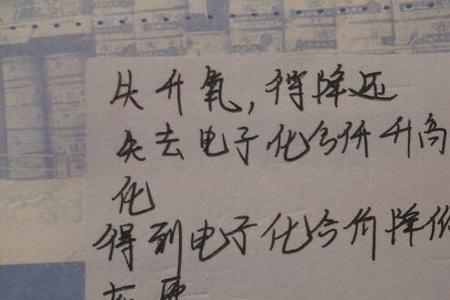 失升氧，得降还
失去电子化合价升高
化
得到电子化合价降低